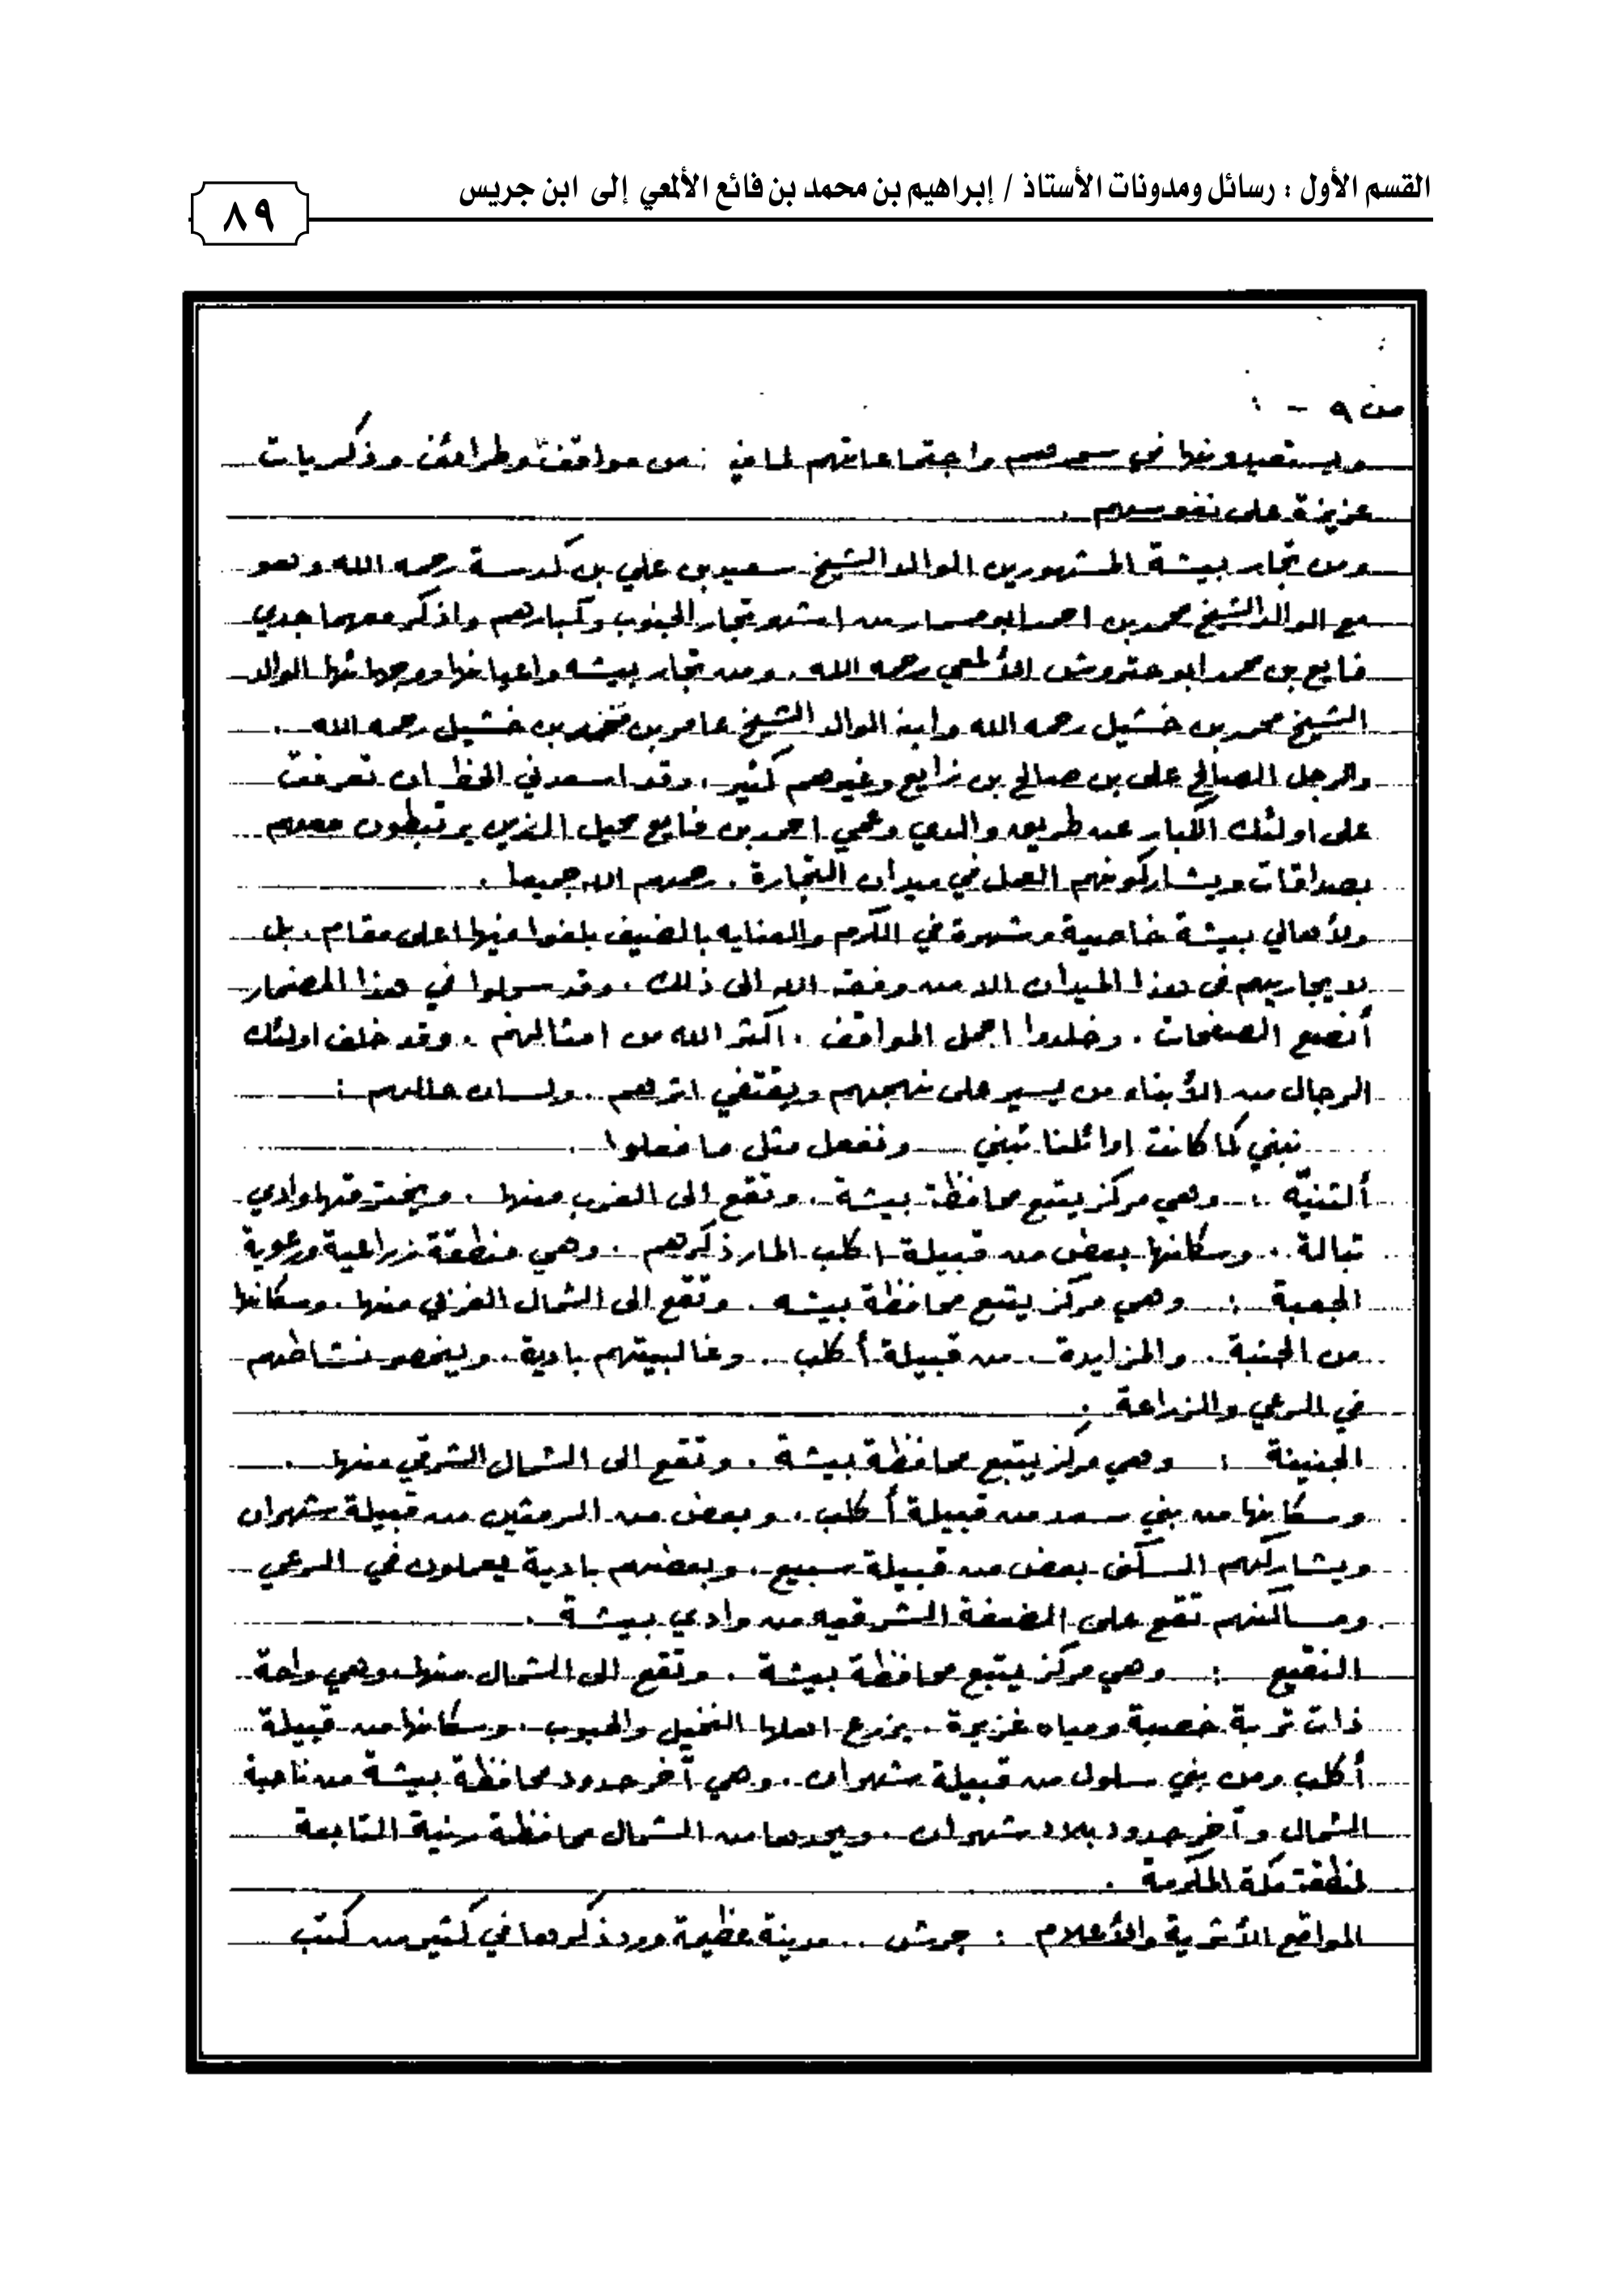 القسم الأول : رسائل ومدونات الأستاذ / إبراهيم بن محمد بن فائع الألمعي إلى ابن جريس
٨٩
ص ٩ -
ويستعيدونها في سمرهم واجتماعاتهم لما فيها من مواقف وطرائف وذكريات
عزيزة على نفوسهم .
ومن تجار بيشة المشهورين الوالد الشيخ سعيد بن علي بن كدسة رحمه الله وهو
مع الوالد الشيخ محمد بن احمد ابو مسمار من اشهر تجار الجنوب وكبارهم واذكر معهما جدي
فايع بن محمد ابو عتروش الألمعي رحمه الله . ومن تجار بيشه واعيانها ووجهائها الوالد
الشيخ محمد بن خشيل رحمه الله وابنه الوالد الشيخ عامر بن محمد بن خشيل رحمه الله .
والرجل الصالح على بن صالح بن زايع وغيرهم كثير . وقد اسعدني الحظ ان تعرفت
على اولئك الكبار عن طريق والدي وعمي احمد بن فايع محيل الذين يرتبطون معهم
بصداقات ويشاركونهم العمل في ميدان التجارة . رحمهم الله جميعا .
ولأهالي بيشة خاصية وشهرة في الكرم والعنايه بالضيف بلغوا فيها اعلى مقام . بل
لا يجاريهم في هذا الميدان الا من وفقه الله الى ذلك . وقد سجلوا في هذا المضمار
أنصع الصفحات . وخلدوا اجمل المواقف . اكثر الله من امثالهم . وقد خلف اولئك
الرجال من الأبناء من يسير على نهجهم ويقتفي اثرهم .. ولسان حالهم :
نبني كما كانت اوائلنا تبني -- ونفعل مثل ما فعلوا .
ألثنيّة :- وهي مركز يتبع محافظة بيشة . وتقع الى الغرب منها . ويخترقها وادي
تبالة .. وسكانها بعض من قبيلة اكلب المار ذكرهم . وهي منطقة زراعية ورعوية
الجعبة :- وهي مركز يتبع محافظة بيشه . وتقع الى الشمال الغربي منها . وسكانها
من الجنبة . والمزايدة . من قبيلة أكلب .. وغالبيتهم بادية . وينحصر نشاطهم
في الرعي والزراعة .
الجنينة : وهي مركز يتبع محافظة بيشة . وتقع الى الشمال الشرقي منها .
وسكانها من بني سعد من قبيلة أكلب . وبعض من الرمثين من قبيلة شهران
ويشاركهم السكن بعض من قبيلة سبيع . وبعضهم بادية يعملون في الرعي
ومساكنهم تقع على الضفة الشرقيه من وادي بيشة .
النقيع : وهي مركز يتبع محافظة بيشة . وتقع الى الشمال منها . وهي واحة
ذات تربة خصبة ومياه غزيرة . يزرع اهلها النخيل والحبوب . وسكانها من قبيلة
أكلب ومن بني سلول من قبيلة شهران . وهي آخر حدود محافظة بيشة من ناحية
الشمال وآخر حدود بلاد شهران . ويحدها من الشمال محافظة رنية التابعة
لمنطقة مكة المكرمة .
المواقع الأثرية والأعلام : جرش .. مدينة عظيمة ورد ذكرها في كثير من كتب